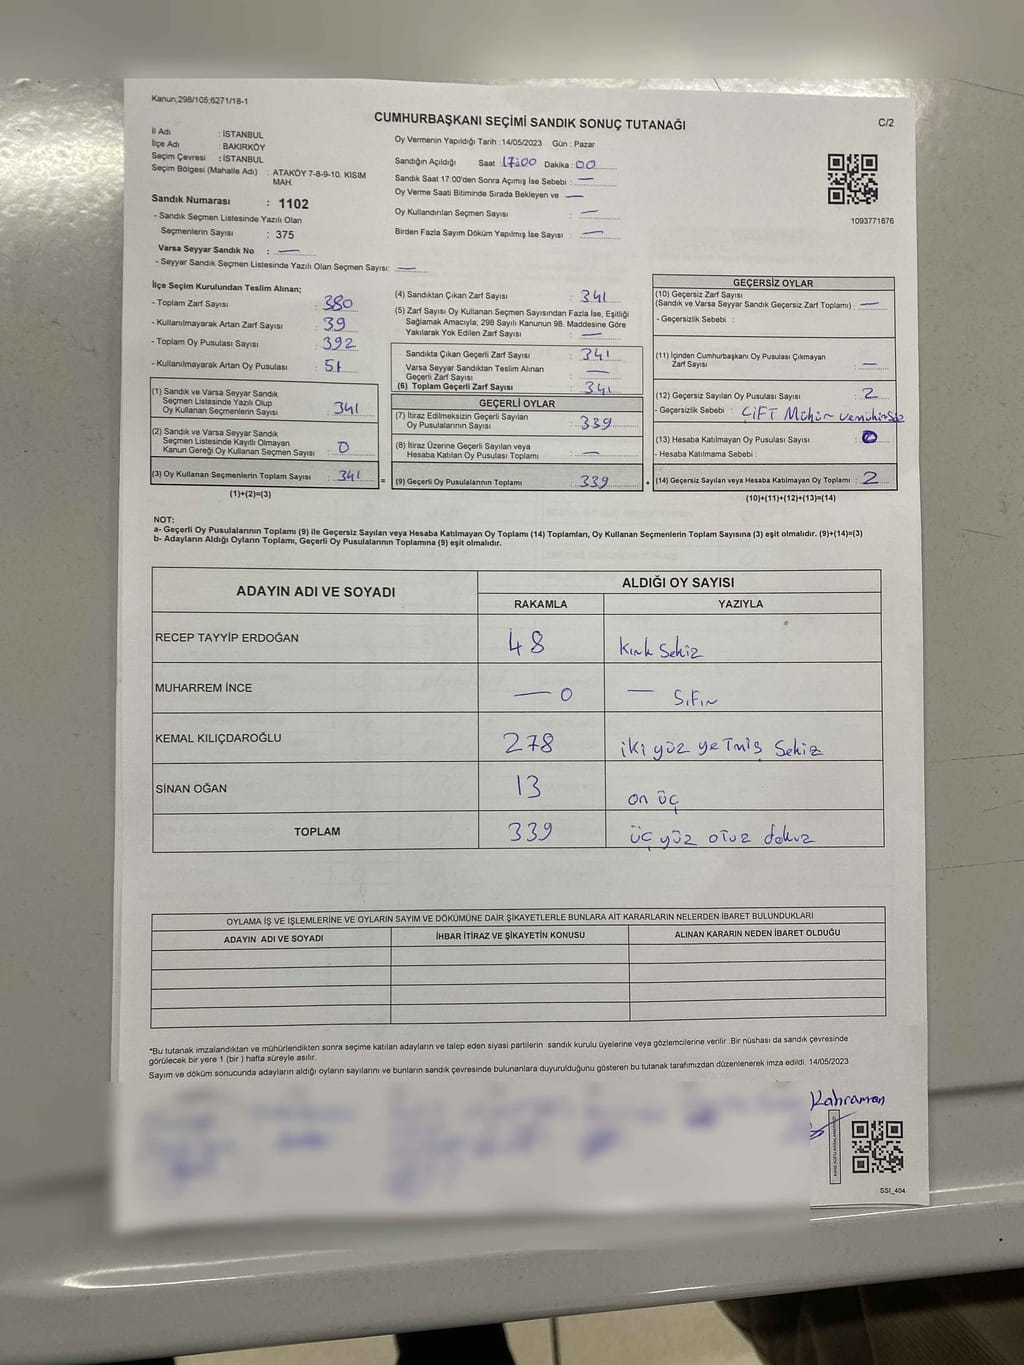 Kanun;298/105;6271/18-1
CUMHURBAŞKANI SEÇİMİ SANDIK SONUÇ TUTANAĞI
C/2
İl Adı : İSTANBUL
İlçe Adı : BAKIRKÖY
Seçim Çevresi : İSTANBUL
Seçim Bölgesi (Mahalle Adı) : ATAKÖY 7-8-9-10. KISIM MAH.
Sandık Numarası : 1102
- Sandık Seçmen Listesinde Yazılı Olan
Seçmenlerin Sayısı : 375
Varsa Seyyar Sandık No : —
- Seyyar Sandık Seçmen Listesinde Yazılı Olan Seçmen Sayısı: —
Oy Vermenin Yapıldığı Tarih : 14/05/2023 Gün : Pazar
Sandığın Açıldığı Saat : 17:00 Dakika : 00
Sandık Saat 17:00'den Sonra Açımış İse Sebebi : —
Oy Verme Saati Bitiminde Sırada Bekleyen ve —
Oy Kullandırılan Seçmen Sayısı : —
Birden Fazla Sayım Döküm Yapılmış İse Sayısı : —
1093771876
İlçe Seçim Kurulundan Teslim Alınan;
- Toplam Zarf Sayısı : 380
- Kullanılmayarak Artan Zarf Sayısı : 39
- Toplam Oy Pusulası Sayısı : 392
- Kullanılmayarak Artan Oy Pusulası : 51
(1) Sandık ve Varsa Seyyar Sandık
Seçmen Listesinde Yazılı Olup
Oy Kullanan Seçmenlerin Sayısı : 341
(2) Sandık ve Varsa Seyyar Sandık
Seçmen Listesinde Kayıtlı Olmayan
Kanun Gereği Oy Kullanan Seçmen Sayısı : 0
(3) Oy Kullanan Seçmenlerin Toplam Sayısı : 341
(1)+(2)=(3)
(4) Sandıktan Çıkan Zarf Sayısı : 341
(5) Zarf Sayısı Oy Kullanan Seçmen Sayısından Fazla İse, Eşitliği
Sağlamak Amacıyla, 298 Sayılı Kanunun 98. Maddesine Göre
Yakılarak Yok Edilen Zarf Sayısı : —
Sandıkta Çıkan Geçerli Zarf Sayısı : 341
Varsa Seyyar Sandıktan Teslim Alınan
Geçerli Zarf Sayısı : —
(6) Toplam Geçerli Zarf Sayısı : 341
GEÇERLİ OYLAR
(7) İtiraz Edilmeksizin Geçerli Sayılan
Oy Pusulalarının Sayısı : 339
(8) İtiraz Üzerine Geçerli Sayılan veya
Hesaba Katılan Oy Pusulası Toplamı : —
= (9) Geçerli Oy Pusulalarının Toplamı : 339 +
GEÇERSİZ OYLAR
(10) Geçersiz Zarf Sayısı
(Sandık ve Varsa Seyyar Sandık Geçersiz Zarf Toplamı) : —
- Geçersizlik Sebebi :
(11) İçinden Cumhurbaşkanı Oy Pusulası Çıkmayan
Zarf Sayısı : —
(12) Geçersiz Sayılan Oy Pusulası Sayısı : 2
- Geçersizlik Sebebi : ÇİFT Mühür ve
(13) Hesaba Katılmayan Oy Pusulası Sayısı : 0
- Hesaba Katılmama Sebebi :
(14) Geçersiz Sayılan veya Hesaba Katılmayan Oy Toplamı : 2
(10)+(11)+(12)+(13)=(14)
NOT:
a- Geçerli Oy Pusulalarının Toplamı (9) ile Geçersiz Sayılan veya Hesaba Katılmayan Oy Toplamı (14) Toplamları, Oy Kullanan Seçmenlerin Toplam Sayısına (3) eşit olmalıdır. (9)+(14)=(3)
b- Adayların Aldığı Oyların Toplamı, Geçerli Oy Pusulalarının Toplamına (9) eşit olmalıdır.
ADAYIN ADI VE SOYADI
ALDIĞI OY SAYISI
RAKAMLA YAZIYLA
RECEP TAYYİP ERDOĞAN 48 Kırk Sekiz
MUHARREM İNCE — 0 — Sıfır
KEMAL KILIÇDAROĞLU 278 iki yüz yetmiş Sekiz
SİNAN OĞAN 13 on üç
TOPLAM 339 üç yüz otuz dokuz
OYLAMA İŞ VE İŞLEMLERİNE VE OYLARIN SAYIM VE DÖKÜMÜNE DAİR ŞİKAYETLERLE BUNLARA AİT KARARLARIN NELERDEN İBARET BULUNDUKLARI
ADAYIN ADI VE SOYADI İHBAR İTİRAZ VE ŞİKAYETİN KONUSU ALINAN KARARIN NEDEN İBARET OLDUĞU
*Bu tutanak imzalandıktan ve mühürlendikten sonra seçime katılan adayların ve talep eden siyasi partilerin sandık kurulu üyelerine veya gözlemcilerine verilir. Bir nüshası da sandık çevresinde
görülecek bir yere 1 (bir ) hafta süreyle asılır.
Sayım ve döküm sonucunda adayların aldığı oyların sayılarını ve bunların sandık çevresinde bulunanlara duyurulduğunu gösteren bu tutanak tarafımızdan düzenlenerek imza edildi. 14/05/2023
Kahraman
SSI_404